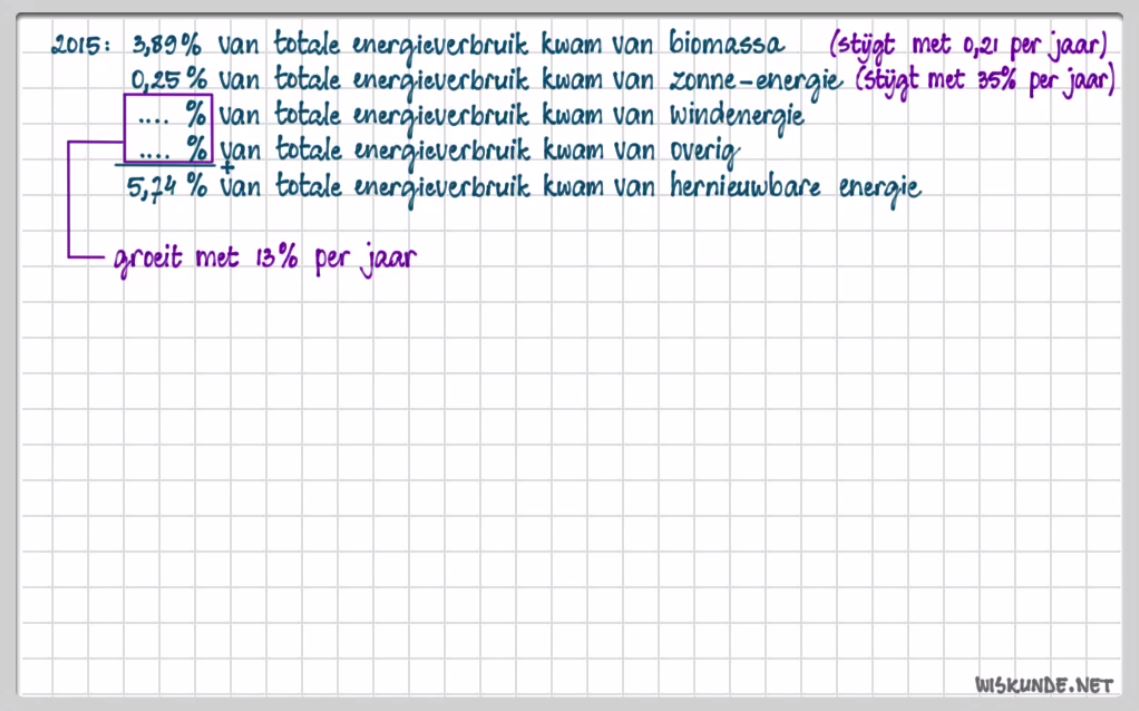 2015: 3,89% van totale energieverbruik kwam van biomassa (stijgt met 0,21 per jaar)
0,25% van totale energieverbruik kwam van zonne-energie (stijgt met 35% per jaar)
.... % van totale energieverbruik kwam van windenergie
.... % van totale energieverbruik kwam van overig
+
5,74% van totale energieverbruik kwam van hernieuwbare energie
groeit met 13% per jaar
WISKUNDE.NET